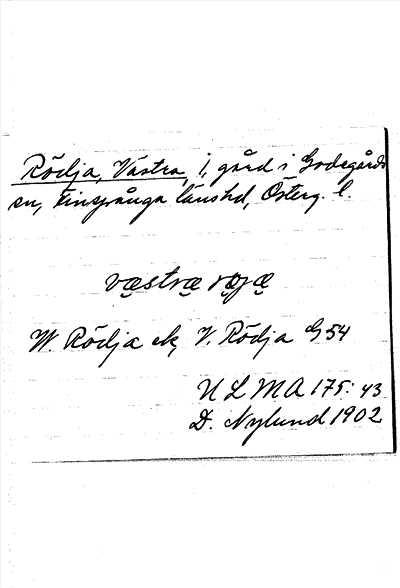 Rödja, Västra, 1, gård i Godegårds
sn, Finspånga länshd, Österg. l.
væstræ røjæ
W. Rödja ek, V. Rödja G 54
ULMA 175: 43
D. Nylund 1902